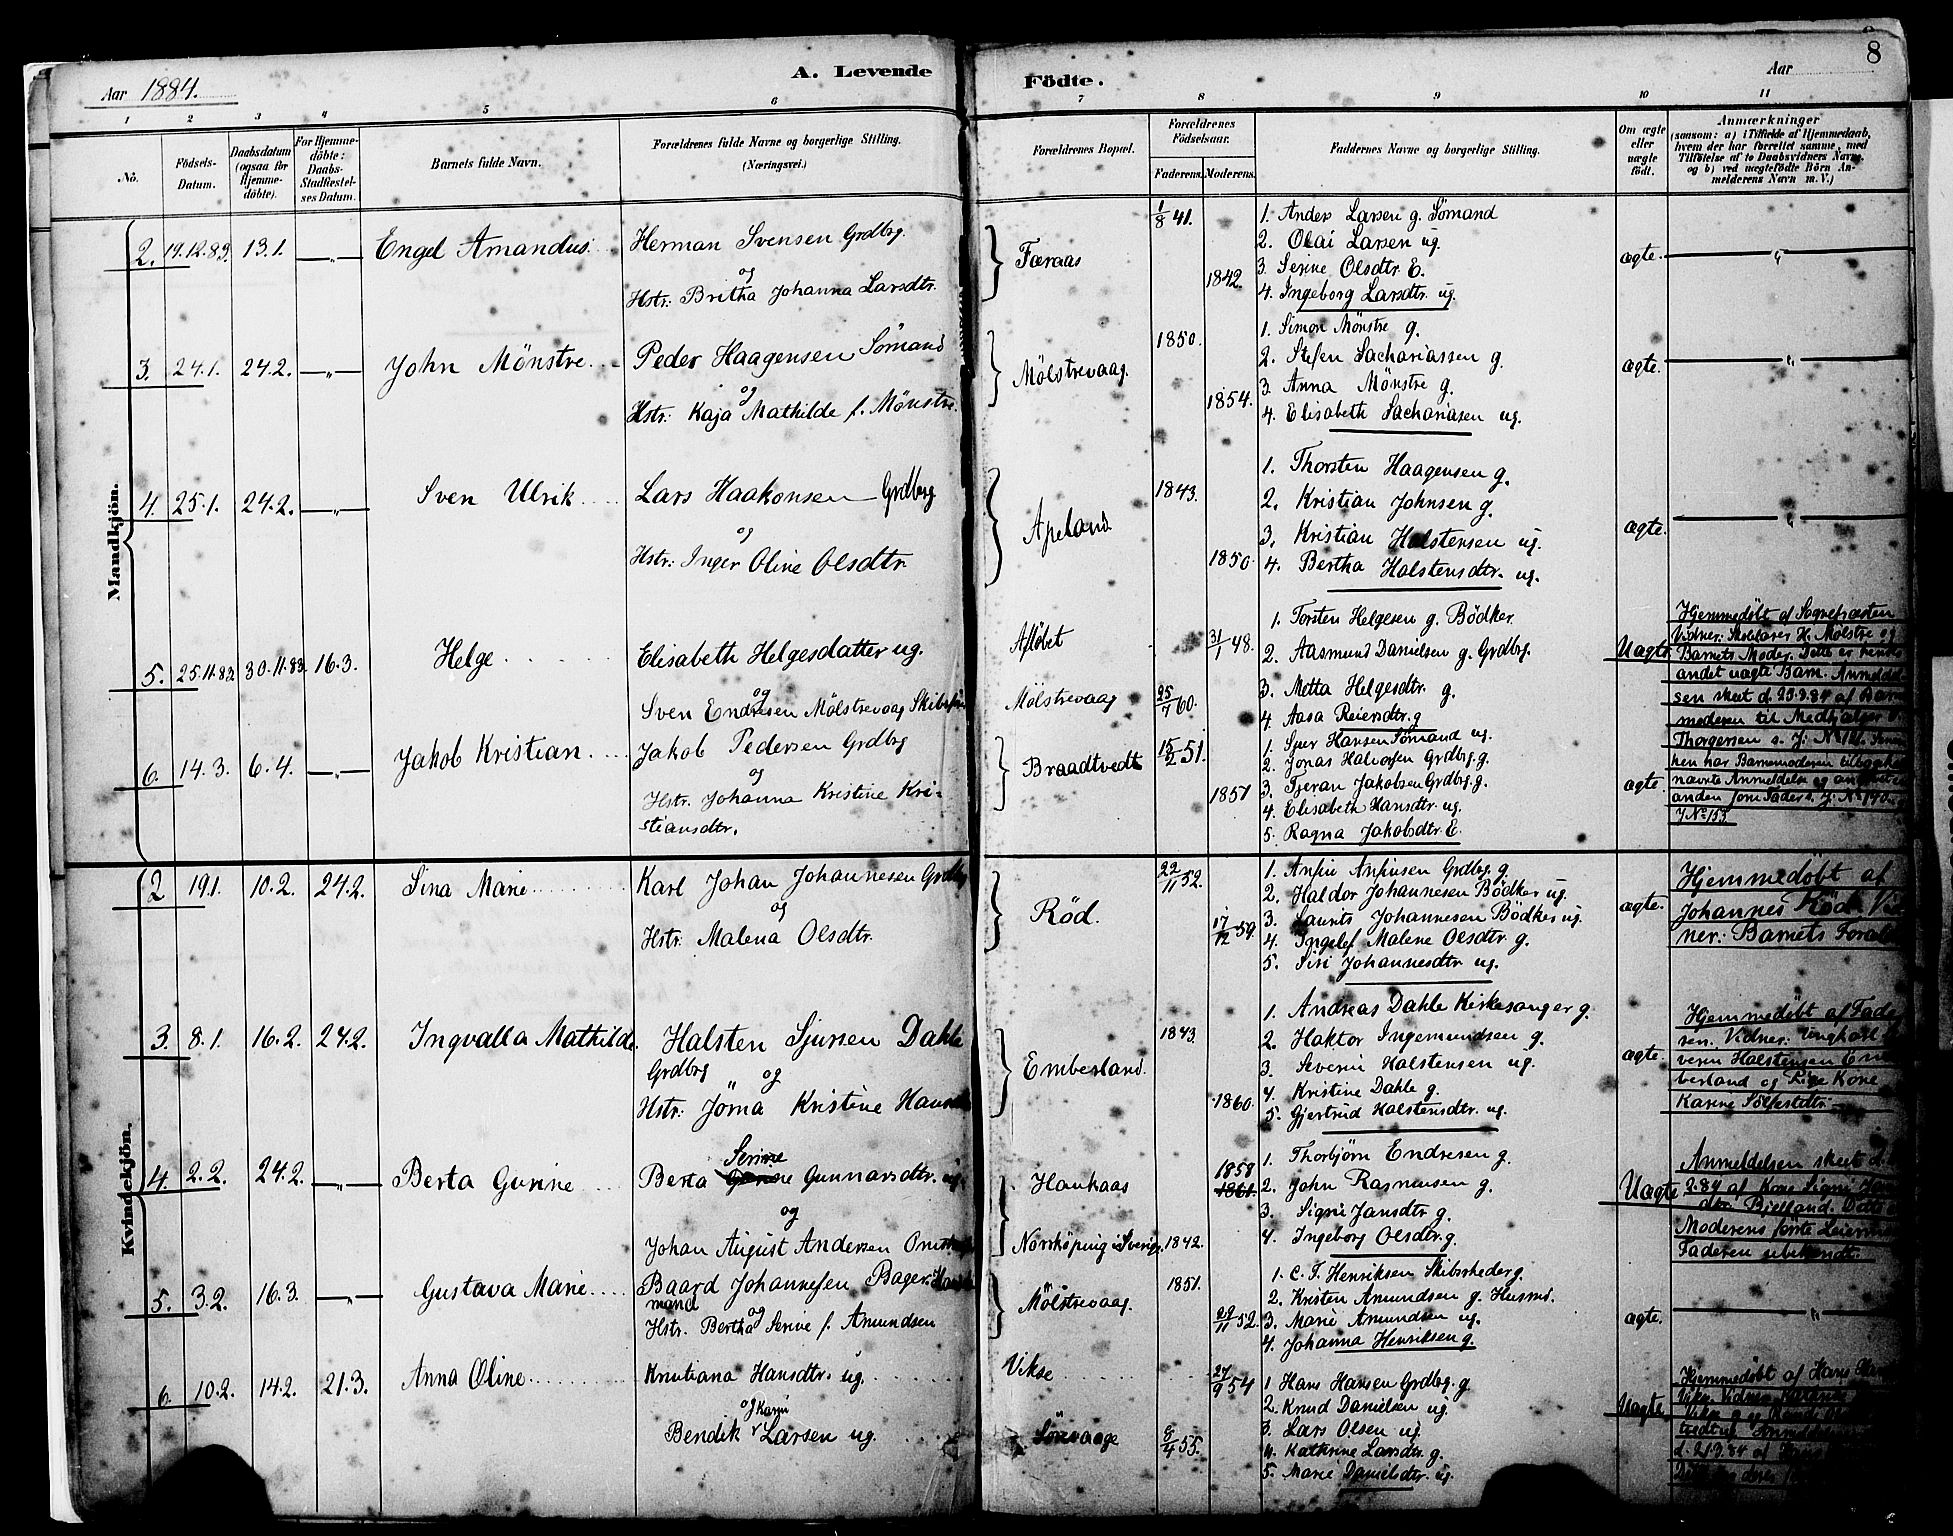 8
Aar 1884.
A. Levende
Födte.
Aar
1 2 3 4 5 6 7 8 9 10 11
No.
Födsels-
Datum.
Daabsdatum
(ogsaa för
Hjemme-
döbte).
For Hjemme-
döbte:
Daabs-
Stadfæstel-
ses Datum.
Barnets fulde Navn.
Forældrenes fulde Navne og borgerlige Stilling.
(Næringsvei.)
Forældrenes Bopæl.
Forældrenes
Födselsaar.
Faderens. Moderens.
Faddernes Navne og borgerlige Stilling.
Om ægte
eller
uægte
födt.
Anmærkninger
(saasom: a) i Tilfælde af Hjemmedaab,
hvem der har forrettet samme, med
Tilföielse af to Daabsvidners Navne,
og b) ved uægtefödte Börn An-
melderens Navn m. V.)
Mandkjön.
2. 19.12.83. 13.1. —„— Engel Amandus
Herman Svensen Grdbrg.
og
Hstr: Britha Johanna Larsdtr.
Færaas
1/8 41.
1842.
1. Anders Larsen g. Sömand
2. Olai Larsen ug.
3. Serine Olsdtr. E.
4. Ingeborg Larsdtr. ug.
ægte. —„—
3. 24.1. 24.2. —„— John Mönstre
Peder Haagensen Sömand
og
Hstr: Kaja Mathilde f. Mönstre.
Mölstrevaag.
1850.
1854.
1. Simon Mönstre g.
2. Stefen Sachariassen g.
3. Anna Mönstre g.
4. Elisabeth Sachariasen ug.
ægte. —„—
4. 25.1. 24.2. —„— Sven Ulrik
Lars Haakonsen Grdbrg
og
Hstr: Inger Oline Olsdtr.
Apeland
1843.
1850.
1. Thorsten Haagensen g.
2. Kristian Johnsen g.
3. Kristian Halstensen ug.
4. Bertha Halstensdtr. ug.
ægte. —„—
5. 25.11.83. 30.11.83. 16.3. Helge
Elisabeth Helgesdatter ug.
og
Sven Endresen Mölstrevaag
Aflöbet
Mölstrevaag
31/1 48.
25/7 60.
1. Torsten Helgesen g. Bödker
2. Aasmund Danielsen g. Grdbrg.
3. Metta Helgesdtr. g.
4. Aasa Reiersdtr. g
Uægte.
Hjemmedöbt af Sognepræsten
Vidner: Skolelærer H. Mölstre og
Barnets Moder. Dette er hendes
andet uægte Barn. Anmeldel-
sen skeet d. 23.2.84 af Barne-
moderen til Medhjælper
Thorgersen
hen har Barnemoderen tilbagekal
anden som Fader
J. No 153.
6. 14.3. 6.4. —„— Jakob Kristian
Jakob Pedersen Grdbrg
og
Hstr. Johanna Kristine Kri-
stiansdtr.
Braadtvedt
15/2 51.
1857
1. Sjur Hansen Sömand ug.
2. Jonas Halvorsen Grdbrg. g.
3. Tjeran Jakobsen Grdbrg. g.
4. Elisabeth Hansdtr. ug.
5. Ragna Jakobsdtr. E.
ægte.
Kvindekjön.
2 19.1. 10.2. 24.2. Sina Marie
Karl Johan Johannesen Grdbrg
og
Hstr: Malena Olsdtr.
Röd.
22/11 52.
17/12 59.
1. Anfin Anfinsen Grdbrg. g.
2. Haldor Johannesen Bödker ug.
3. Laurits Johannesen Bödker ug.
4. Ingelef Malene Olsdtr. g.
5. Siri Johannesdtr. ug.
ægte.
Hjemmedöbt af
Johannes Röd. Vid
ner: Barnets Foræl
3. 8.1. 16.2. 24.2. Ingvalla Mathilde
Halsten Sjursen Dahle
Grdbrg
og
Hstr: Jörna Kristine Hans
Emberland.
1843.
1860.
1. Andreas Dahle Kirkesanger g.
2. Haktor Ingemundsen g.
3. Severin Halstensen ug.
4. Kristine Dahle g.
5. Gjertrud Halstensdtr. ug.
ægte.
Hjemmedöbt af Fade
ren. Vidner: Ungkarl
verin Halstensen Em
berland og Pige Kone
Karine Sölfestdtr.
4. 2.2. 24.2. —„— Berta Gurine
Serine
Berta Gunnarsdtr. ug.
og
Johan August Andersen
Haukaas
Norrköping i Sverige
1858
1861.
1842.
1. Thorbjörn Endresen g.
2. John Rasmusen g.
3. Signi Jansdtr. g.
4. Ingeborg Olsdtr. g.
Uægte
Anmeldelsen skeet d.
2.84 af Kone Signi
dtr. Bjelland. Dette
Moderens förste Leiermaal
Faderen ubekjendt.
5. 3.2. 16.3. —„— Gustava Marie
Baard Johannesen Bager.
mand
og
Hstr. Bertha Serine f. Amundsen
Mölstrevaag.
1851.
29/11 52.
1. C. T. Henriksen Skibsrheder g.
2. Kristen Amundsen g. Husmd.
3. Marie Amundsen ug.
4. Johanna Henriksen g.
ægte. —„—
6. 10.2. 14.2. 21.3. Anna Oline
Kristiana Hansdtr. ug.
og Karin
Bendik Larsen ug.
Vikse
Sörevaage
27/9 54
8/4 55.
1 Hans Hansen Grdbrg. g.
2. Knud Danielsen ug.
3. Lars Olsen ug.
4. Kathrine Larsdtr. g.
5. Marie Danielsdtr. ug.
Uægte.
Hjemmedöbt af Hans
d. 21.3.84 af